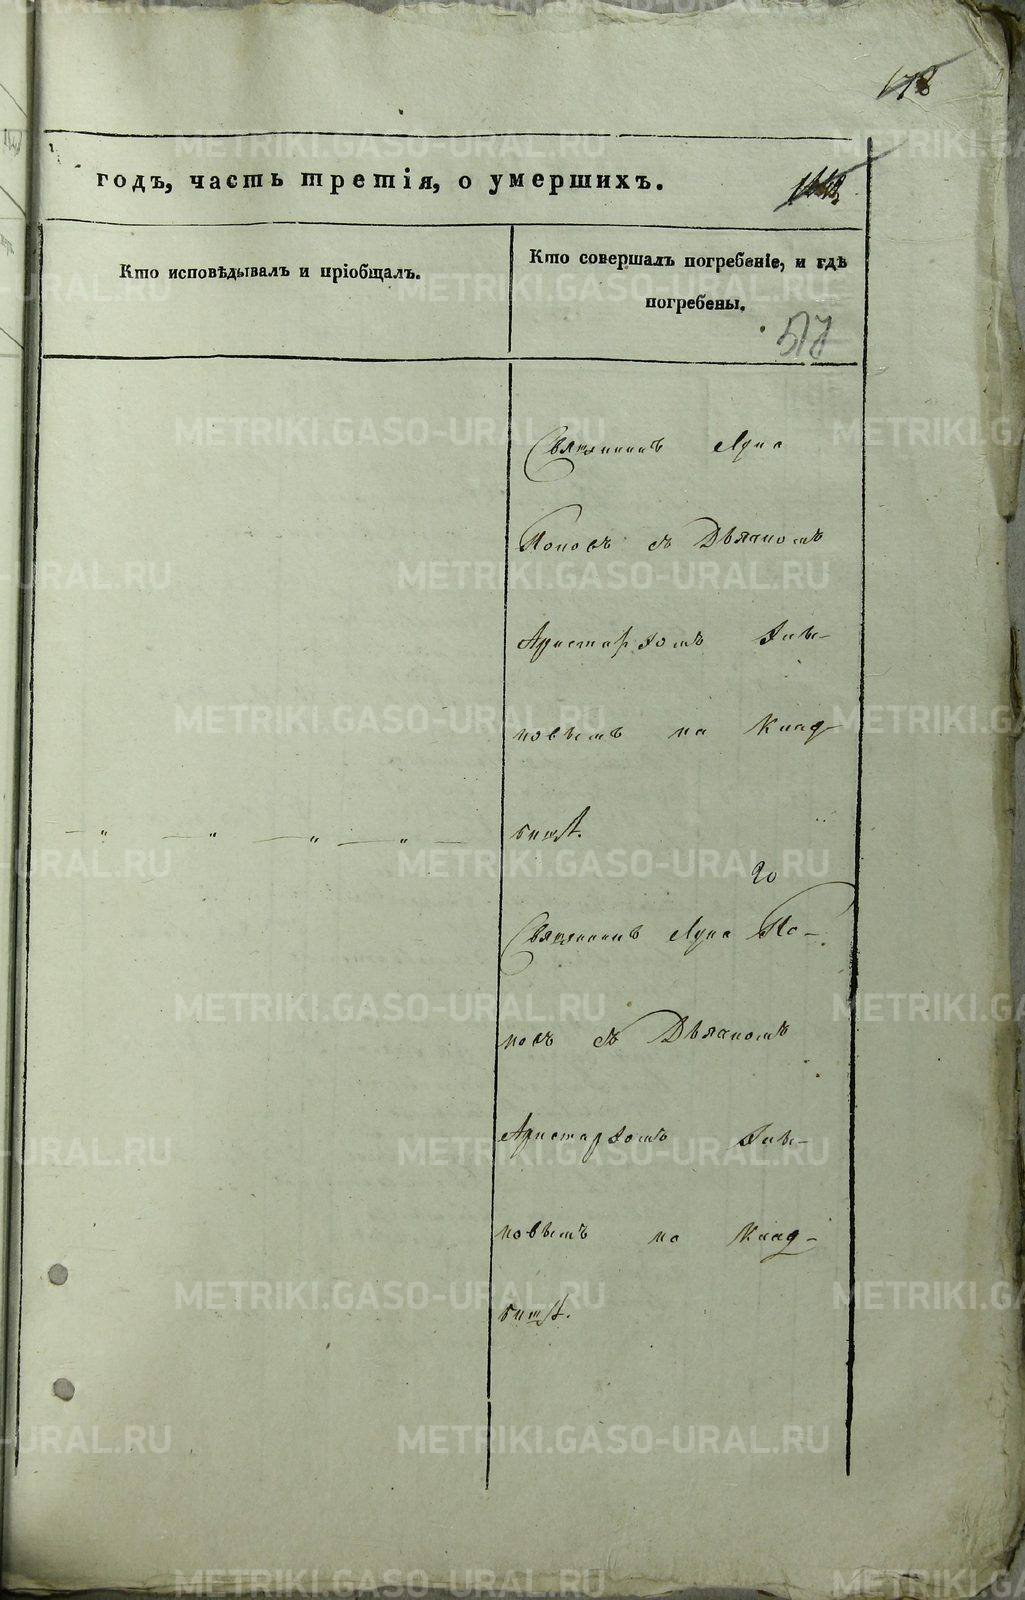 178
годъ, часть третія, о умершихъ.
Кто исповѣдывалъ и пріобщалъ.
Кто совершалъ погребеніе, и гдѣ
погребены.
517
Священникъ Лука
Поповъ съ Дьячкомъ
Аристархомъ
новымъ на Клад-
— „ — „ — „ — „ —
бищѣ.
20
Священникъ Лука По-
повъ съ Дьячкомъ
Аристархомъ
новымъ на Клад-
бищѣ.
METRIKI.GASO-URAL.RU